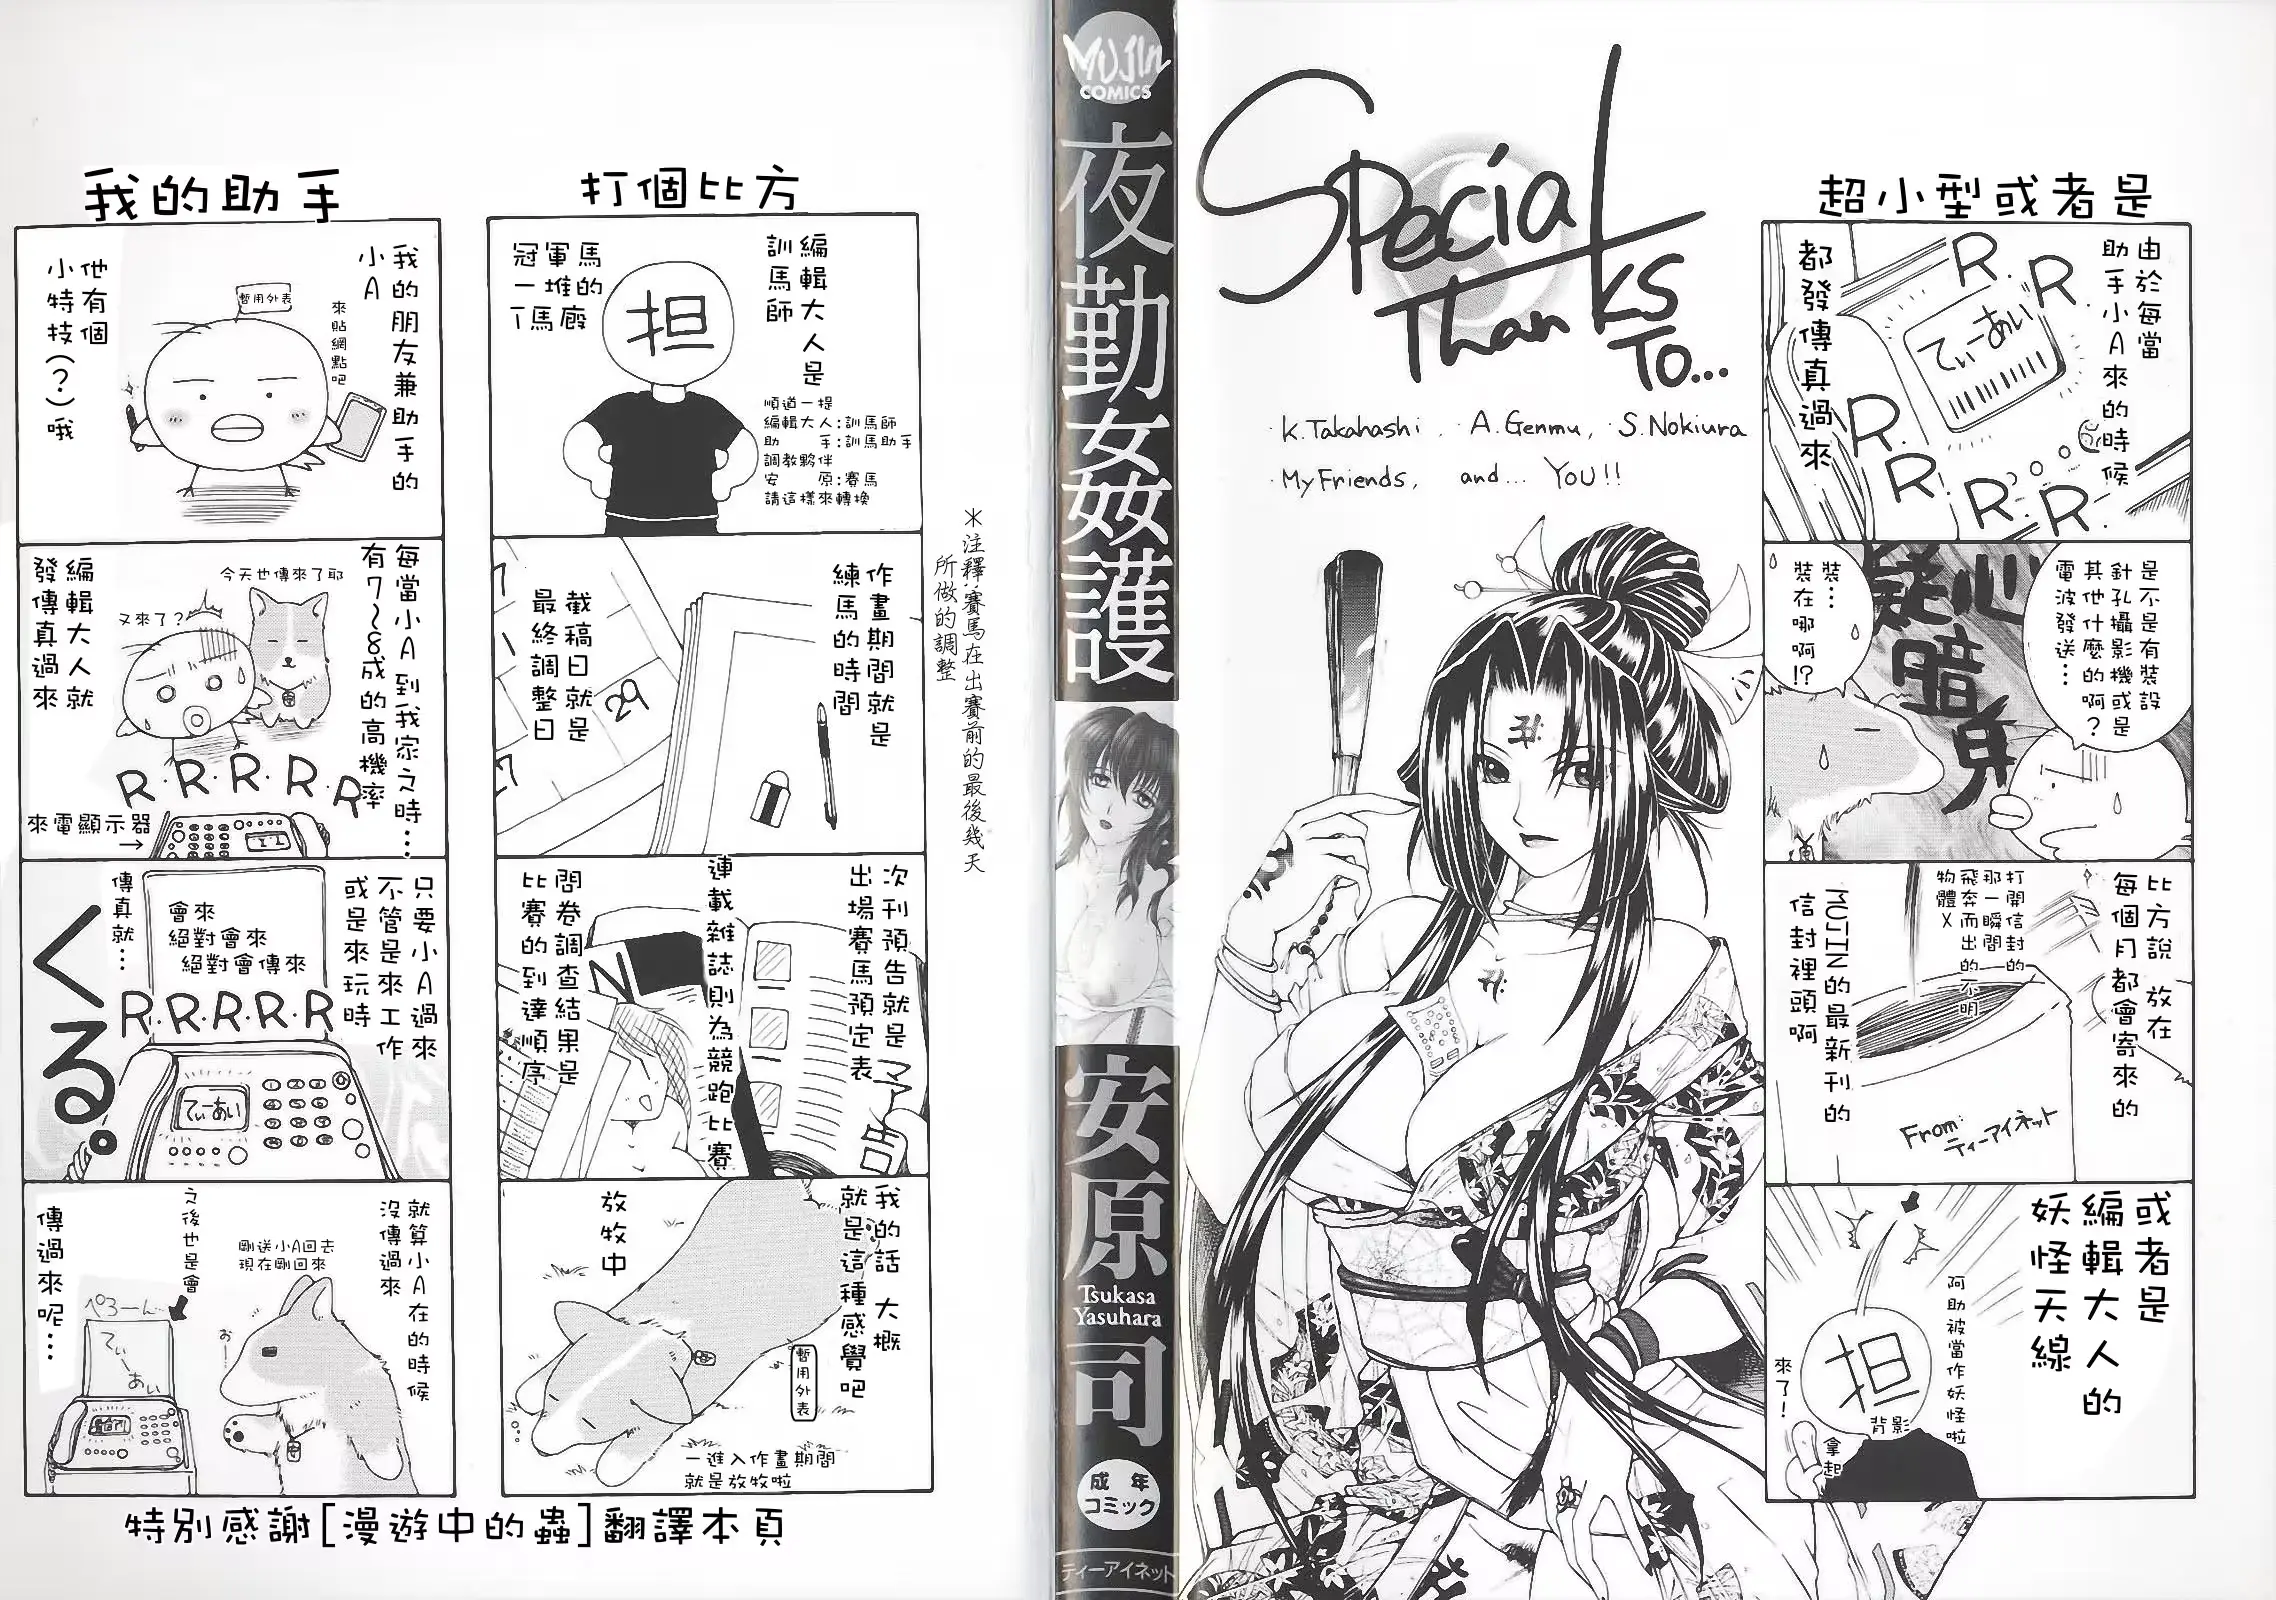 超小型或者是
由於每當
助手小A來的時候
都發傳真過來
R.R.
てぃーあい
R.R.R.R.
是不是有裝設
針孔攝影機或是
其他什麼的啊?
電波發送…
疑心暗鬼
裝…
裝在哪啊!?
比方說 放在
每個月都會寄來的
MUJIN的最新刊的
信封裡頭啊
打開信封的
那一瞬間
飛奔而出的不明
物體X
From:
ティーアイネット
或者是
編輯大人的
妖怪天線
阿助被當作妖怪啦
担
背影
來了!
拿起
Special
Thanks
To...
・K.Takahashi, ・A.Genmu, ・S.Nokiura
・My Friends, and... YOU!!
MUJIN
COMICS
夜勤姦護
安原司
Tsukasa
Yasuhara
成年
コミック
ティーアイネット
打個比方
編輯大人是
訓馬師
冠軍馬
一堆的
T馬廄
担
順道一提
編輯大人:訓馬師
助　　手:訓馬助手
調教夥伴
安　　原:賽馬
請這樣來轉換
作畫期間就是
練馬的時間
截稿日就是
最終調整日
29
＊注釋:賽馬在出賽前的最後幾天
所做的調整
次刊預告就是
出場賽馬預定表
連載雜誌則為競跑比賽
問卷調查結果是
比賽的到達順序
予告
我的話 大概
就是這種感覺吧
放牧中
暫用外表
一進入作畫期間
就是放牧啦
我的助手
我的朋友兼助手的
小A
來貼網點吧
暫用外表
他有個
小特技(?)哦
每當小A到我家之時…
有7~8成的高機率
編輯大人就
發傳真過來
今天也傳來了耶
又來了?
R.R.R.R.R
來電顯示器
→
只要小A過來
不管是來工作
或是來玩時
傳真就…
會來
絕對會來
絕對會傳來
R.R.R.R.R
くる。
てぃーあい
就算小A在的時候
沒傳過來
之後也是會
傳過來呢…
剛送小A回去
現在剛回來
お—
ぺろーん
てぃー
あい
特別感謝[漫遊中的蟲]翻譯本頁